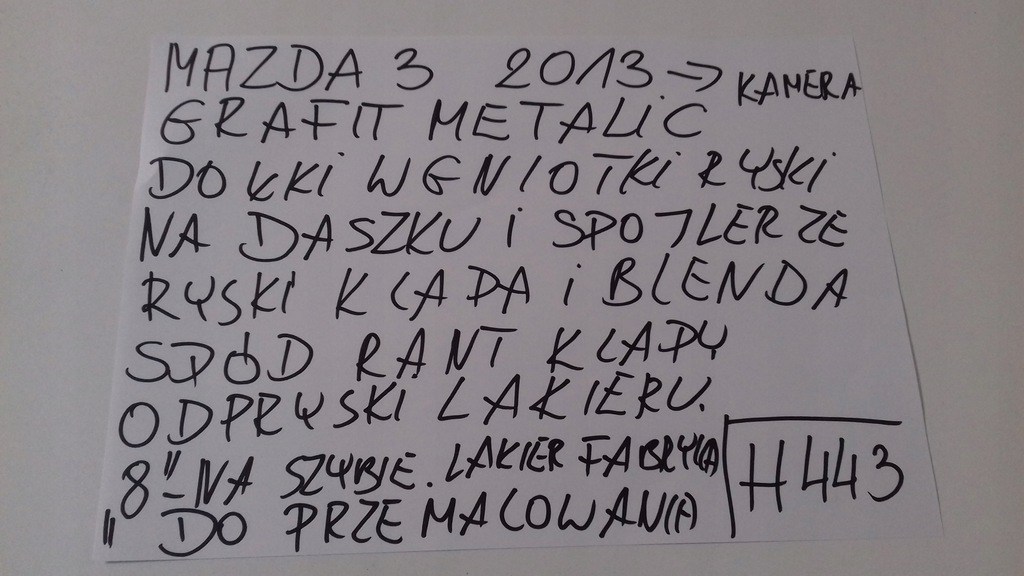 MAZDA 3 2013 → KAMERA
GRAFIT METALIC
DOŁKI WGNIOTKI RYSKI
NA DASZKU i SPOJLERZE
RYSKI KLAPA i BLENDA
SPÓD RANT KLAPY
ODPRYSKI LAKIERU.
8" - NA SZYBIE. LAKIER FABRYKA
" DO PRZEMALOWANIA
H443